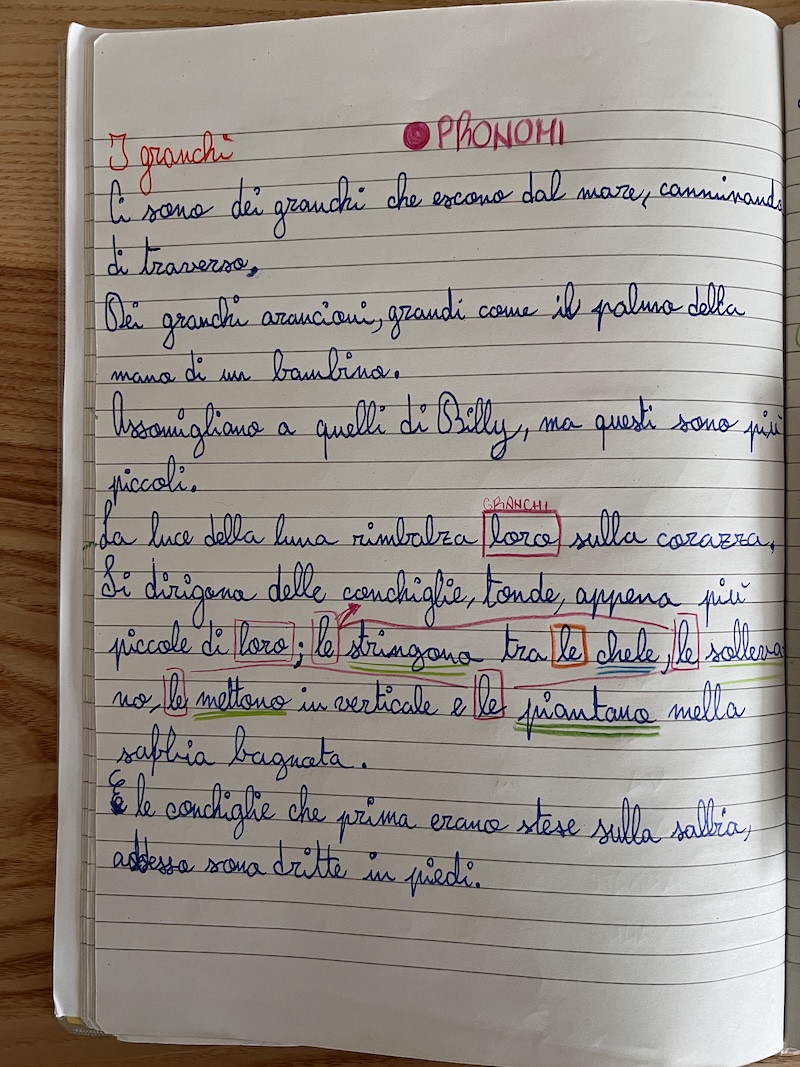 I granchi
PRONOMI
Ci sono dei granchi che escono dal mare, camminando
di traverso.
Dei granchi arancioni, grandi come il palmo della
mano di un bambino.
Assomigliano a quelli di Billy, ma questi sono più
piccoli.
GRANCHI
La luce della luna rimbalza loro sulla corazza.
Si dirigono delle conchiglie, tonde, appena più
piccole di loro; le stringono tra le chele, le solleva
no, le mettono in verticale e le piantano nella
sabbia bagnata.
E le conchiglie che prima erano stese sulla sabbia,
adesso sono dritte in piedi.